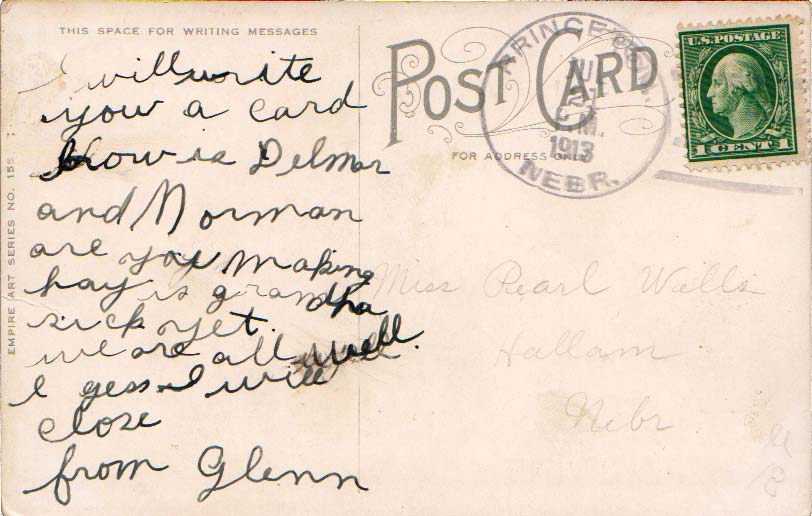 THIS SPACE FOR WRITING MESSAGES
I will write
yow a card
how is Delmar
and Norman
are you making
hay is grandpa
sick yet.
we are all well.
I gess I will
close
from Glenn
EMPIRE ART SERIES NO. 155
POST CARD
FOR ADDRESS ONLY
PRINCETON,
21
P.M.
1913
NEBR.
U.S. POSTAGE
1 CENT 1
Miss Pearl Wells
Hallam
Nebr